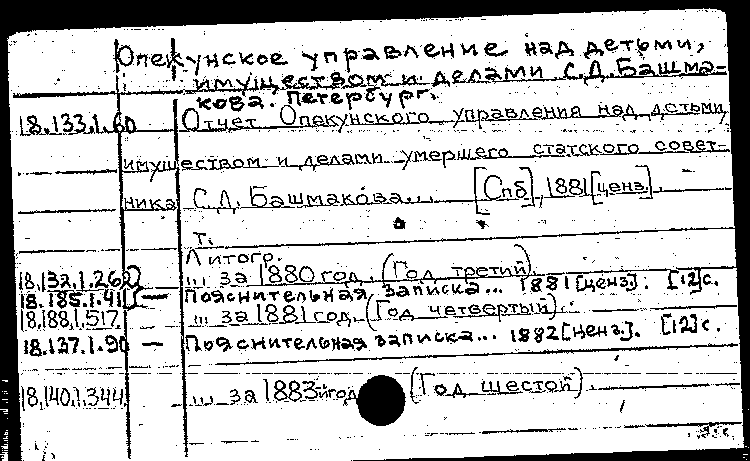 Опекунское управление над детьми,
имуществом и делами С.Д. Башма-
кова. Петербург.
18.133.1.60 Отчет Опекунского управления над детьми,
имуществом и делами умершего статского совет-
ника С.Д. Башмакова... [Спб], 1881 [ценз].
т.
Литогр.
18.132.1.262 ... за 1880 год. (Год третий).
18.185.1.41 — Пояснительная записка... 1881 [ценз]. [12] с.
18.188.1.517 ... за 1881 год. (Год четвертый).
18.137.1.90 — Пояснительная записка... 1882 [ценз.]. [12] с.
18.140.1.344 ... за 1883й год (Год шестой).